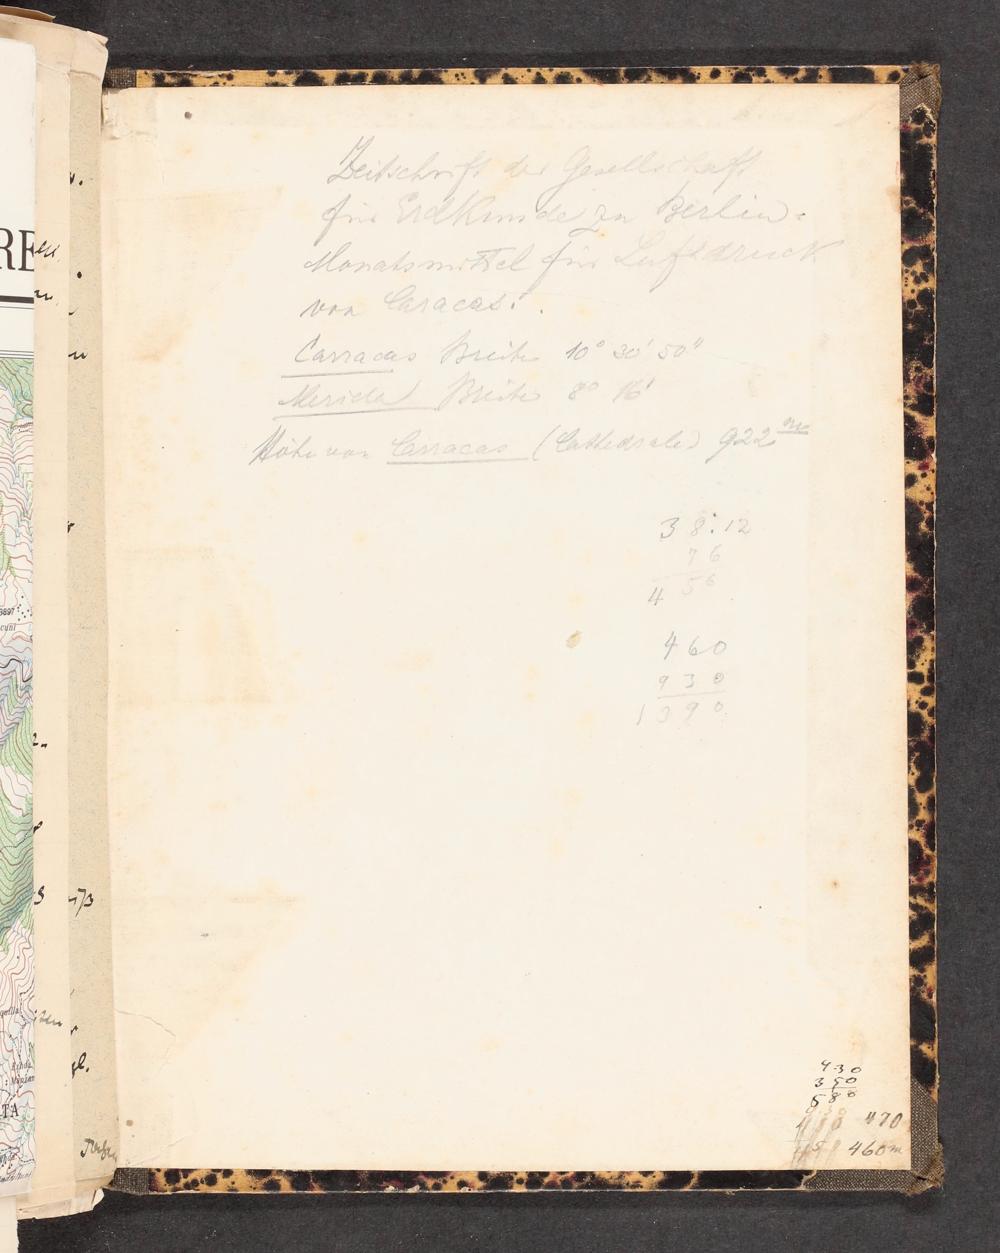 Zeitschrift der Gesellschaft
für Erdkunde zu Berlin.
Monatsmittel für Luftdruck
von Caracas.
Carracas Breite 10° 30' 50"
Merida Breite 8° 16'
Höhe von Carracas (Cathedrale) 922 m
38.12
76
456
460
930
1390
430
350
580
470
460m
RE
3897
TA
173